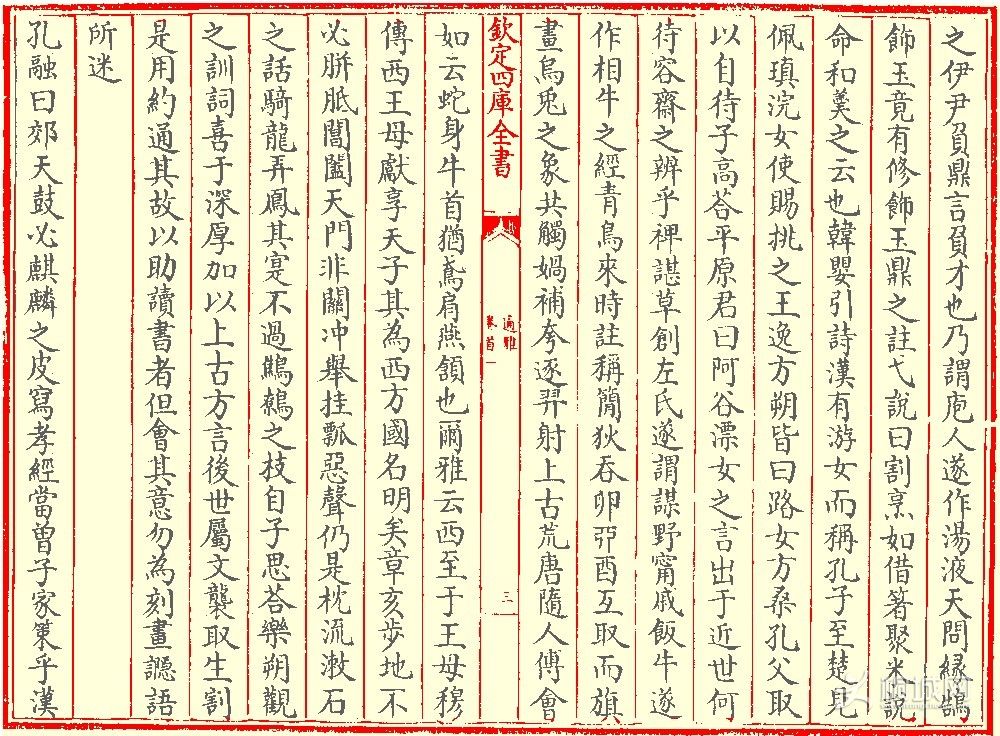 之伊尹負鼎言負才也乃謂庖人遂作湯液天問緣鵠
飾玉竟有修飾玉鼎之註弋說曰割烹如借箸聚米說
命和羹之云也韓嬰引詩漢有游女而稱孔子至楚見
佩瑱浣女使賜挑之王逸方朔皆曰路女方桑孔父取
以自待子高荅平原君曰阿谷漂女之言出于近世何
待容齋之辨乎裨諶草創左氏遂謂謀野甯戚飯牛遂
作相牛之經青鳥來時註稱簡狄吞卵丣酉互取而旗
畫烏兎之象共觸媧補夸逐羿射上古荒唐隨人傅會
欽定四庫全書
通雅
卷首一
三
如云蛇身牛首猶鳶肩燕頷也爾雅云西至于王母穆
傳西王母獻享天子其為西方國名明矣章亥步地不
必胼胝閶闔天門非關冲舉挂瓢惡聲仍是枕流漱石
之話騎龍弄鳳其寔不過鷦鶊之枝自子思荅樂朔觀
之訓詞喜于深厚加以上古方言後世屬文襲取生割
是用約通其故以助讀書者但會其意勿為刻畫讔語
所迷
孔融曰郊天鼓必麒麟之皮寫孝經當曽子家策乎漢